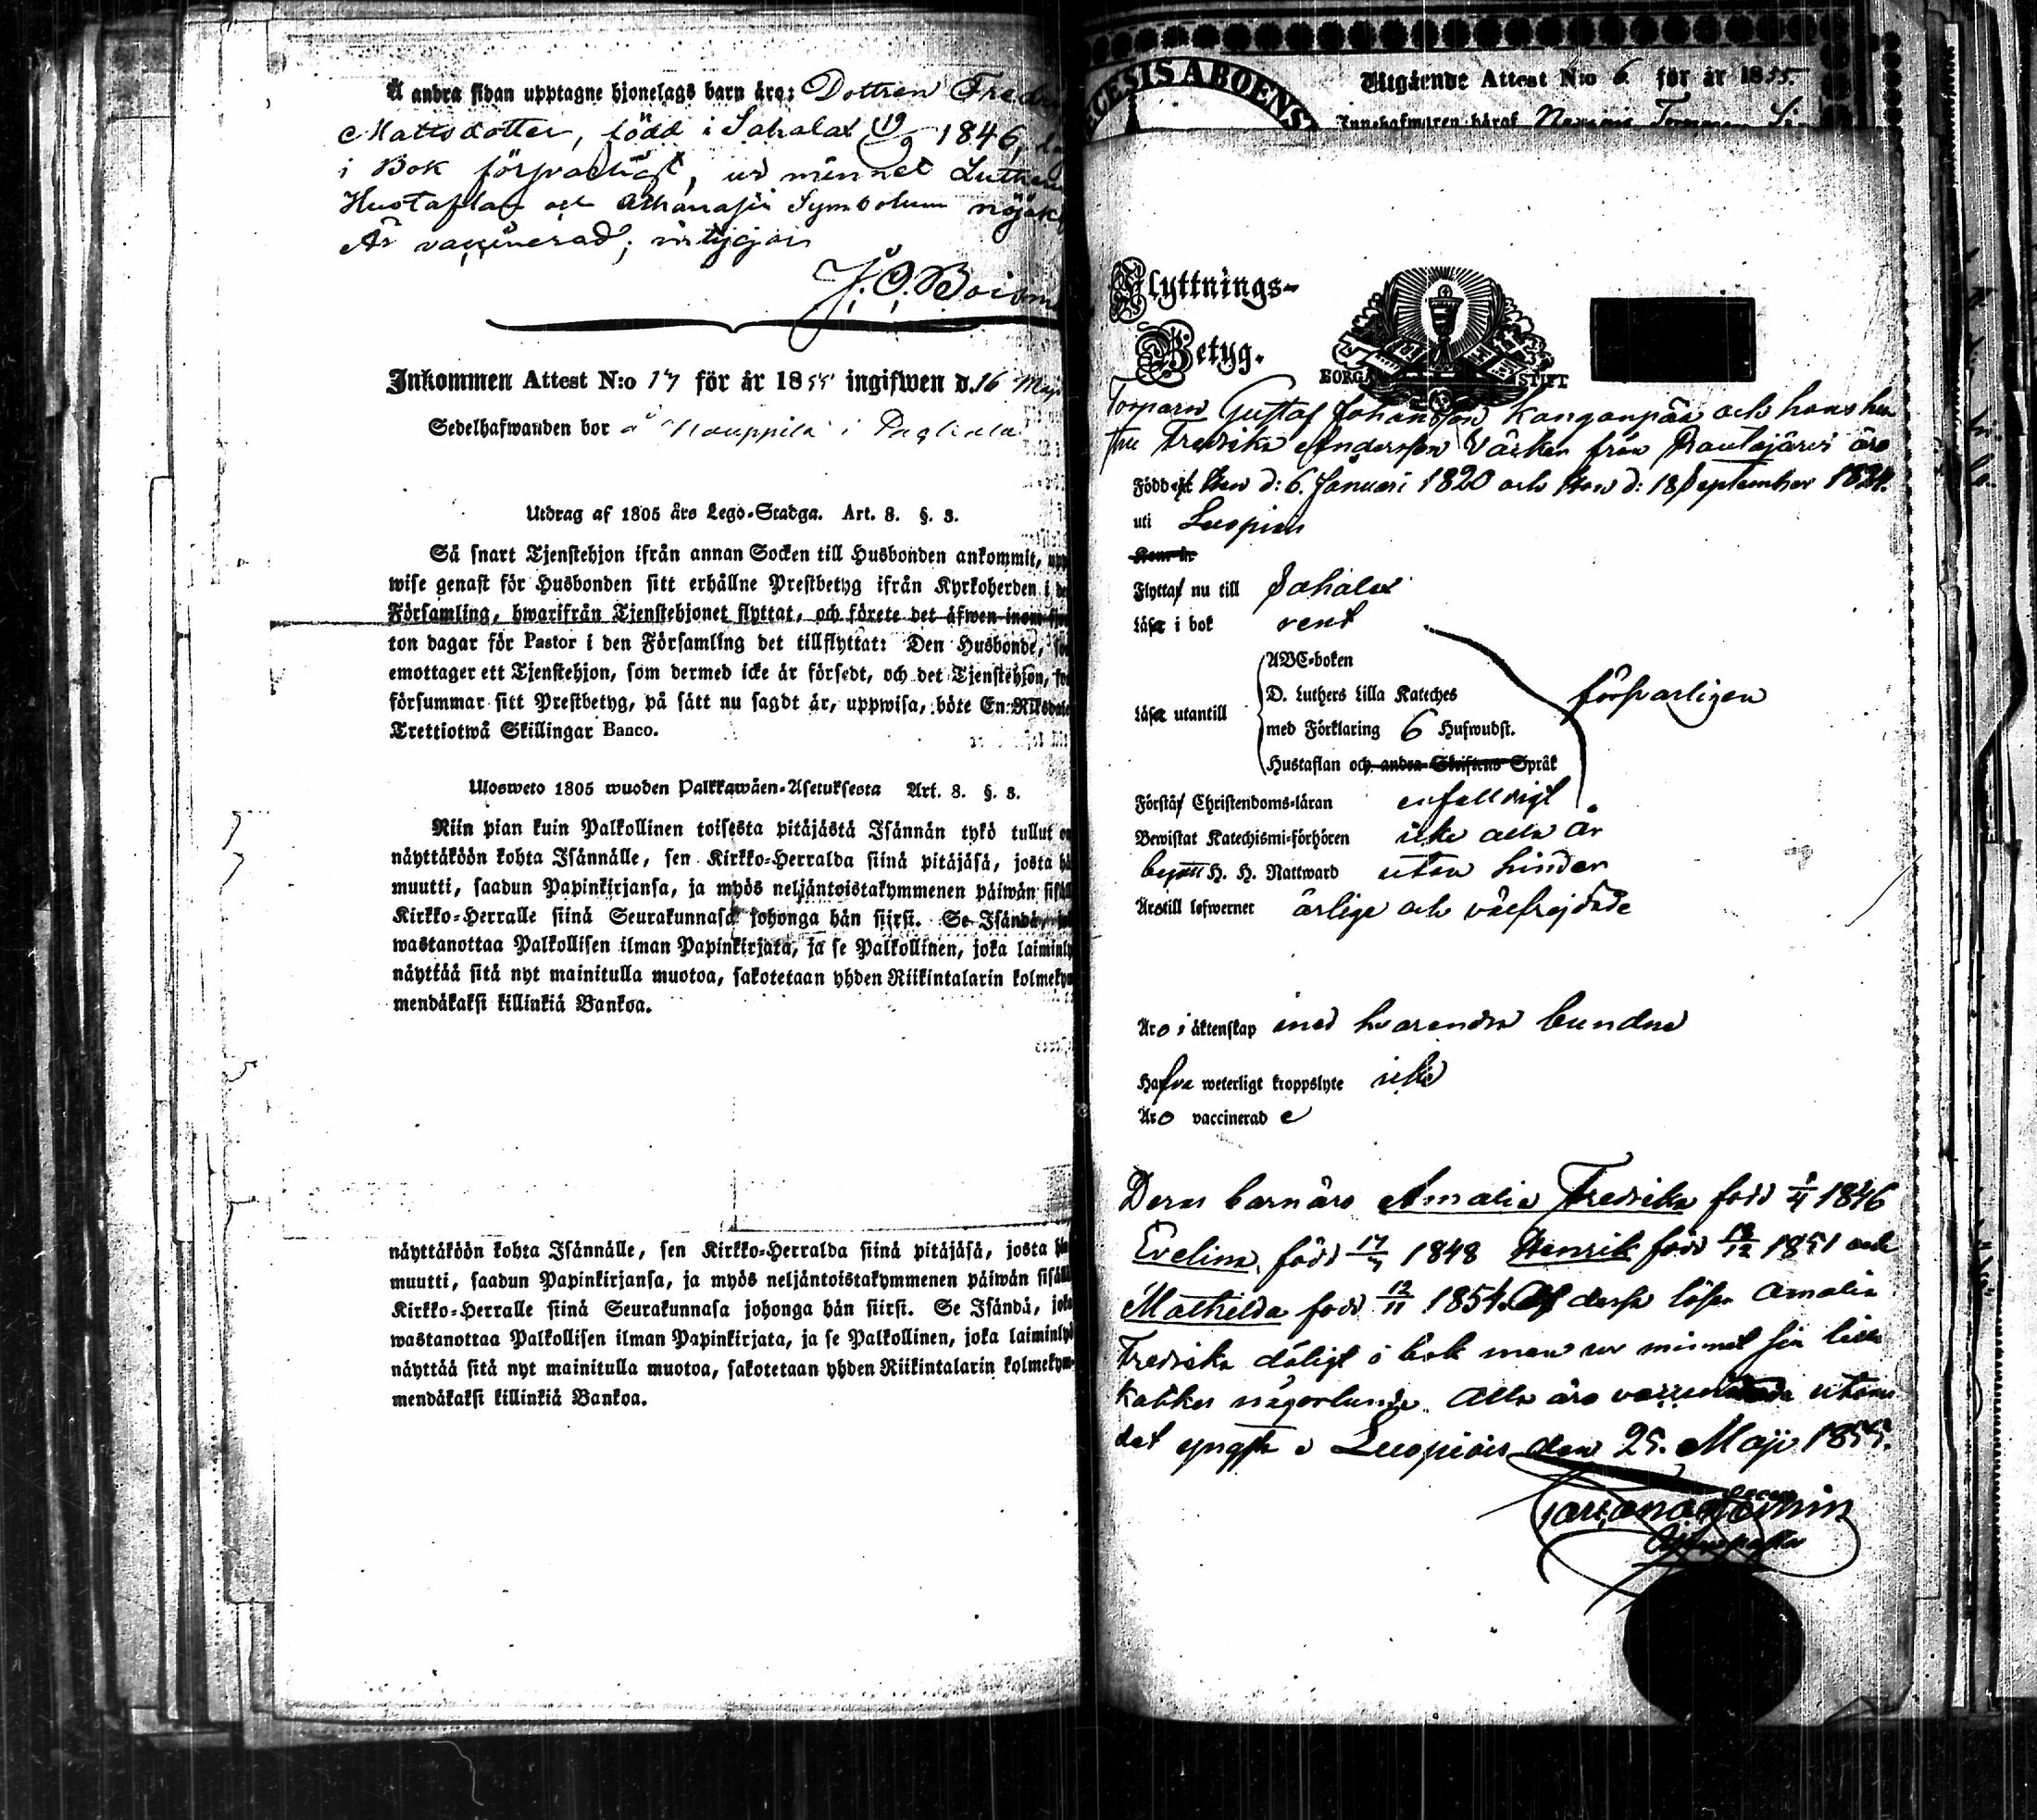 Å andra sidan upptagne hjonelags barn äro: Dottren Fredri
Mattsdotter, född i Sahalax 19/9 1846,
i Bok försvarligt, ur minnet Lutheri
Hustaflan och Athanasii Symbolum nöjakt
Är vaccinerad; intygar
J. O. Boism
Inkommen Attest N:o 17 för år 1855 ingifwen d. 16 Maji
Sedelhafwanden bor å Kauppila i Pagliala
Utdrag af 1805 års Lego-Stadga. Art. 8. §. 3.
Så snart Tjenstehjon ifrån annan Socken till Husbonden ankommit, upp
wise genast för Husbonden sitt erhållne Prestbetyg ifrån Kyrkoherden i de
Församling, hwarifrån Tjenstehjonet flyttat, och förete det äfwen inom fjor
ton dagar för Pastor i den Församling det tillflyttat: Den Husbonde, so
emottager ett Tjenstehjon, som dermed icke är försedt, och det Tjenstehjon, so
försummar sitt Prestbetyg, på sätt nu sagdt är, uppwisa, böte En Riksdale
Trettiotwå Skillingar Banco.
Ulosweto 1805 wuoden Palkkawäen-Asetuksesta Art. 8. §. 3.
Niin pian kuin Palkollinen toisesta pitäjästä Isännän tykö tullut on
näyttäköön kohta Isännälle, sen Kirkko-Herralda siinä pitäjäsä, josta hä
muutti, saadun Papinkirjansa, ja myös neljäntoistakymmenen päiwän sisäll
Kirkko-Herralle siinä Seurakunnasa johonga hän siirsi. Se Isändä, jok
wastanottaa Palkollisen ilman Papinkirjata, ja se Palkollinen, joka laiminly
näyttää sitä nyt mainitulla muotoa, sakotetaan yhden Riikintalarin kolmekym
mendäkaksi killinkiä Bankoa.
näyttäköön kohta Isännälle, sen Kirkko-Herralda siinä pitäjäsä, josta hä
muutti, saadun Papinkirjansa, ja myös neljäntoistakymmenen päiwän sisäll
Kirkko-Herralle siinä Seurakunnasa johonga hän siirsi. Se Isändä, joka
wastanottaa Palkollisen ilman Papinkirjata, ja se Palkollinen, joka laiminly
näyttää sitä nyt mainitulla muotoa, sakotetaan yhden Riikintalarin kolmekym-
mendäkaksi killinkiä Bankoa.
ECESIS ABOENS
Utgående Attest N:o 6 för år 1855.
Innehafwaren häraf
Flyttnings-
Betyg.
BORGÅ STIFT
Torparn Gustaf Johansson Kanganpää och hans hu
stru Fredrika Andersson Värken från Rautajärvi äro
Född Han d: 6. Januari 1820 och Hon d: 18 September 1824.
uti Luopiois
Kom är
Flytta nu till Sahalax
Läsa i bok rent
ABC-boken
D. Luthers Lilla Kateches
Läsa utantill med Förklaring 6 Hufwudst. försvarligen
Hustaflan och andra Skriftens Språk
Förstå Christendoms-läran enfalldigt
Bewistat Katechismi-förhören icke alla år
begått H. H. Nattward utan hinder
Äro till lefwernet ärlige och välfrejdade
Äro i äktenskap med hvarandra bundne
Hafva weterligt kroppslyte icke
Äro vaccinerade
Deras barn äro Amalia Fredrika född 1846
Evelina, född 1848 Henrik född 1851 och
Mathilda född 12/11 1854. Af dessa läser Amalia
Fredrika dåligt i bok men ur minnet sin lilla
Katkes någorlunda. Alla äro vaccinerade utom
det yngsta. Luopiois den 25. Maji 1855.